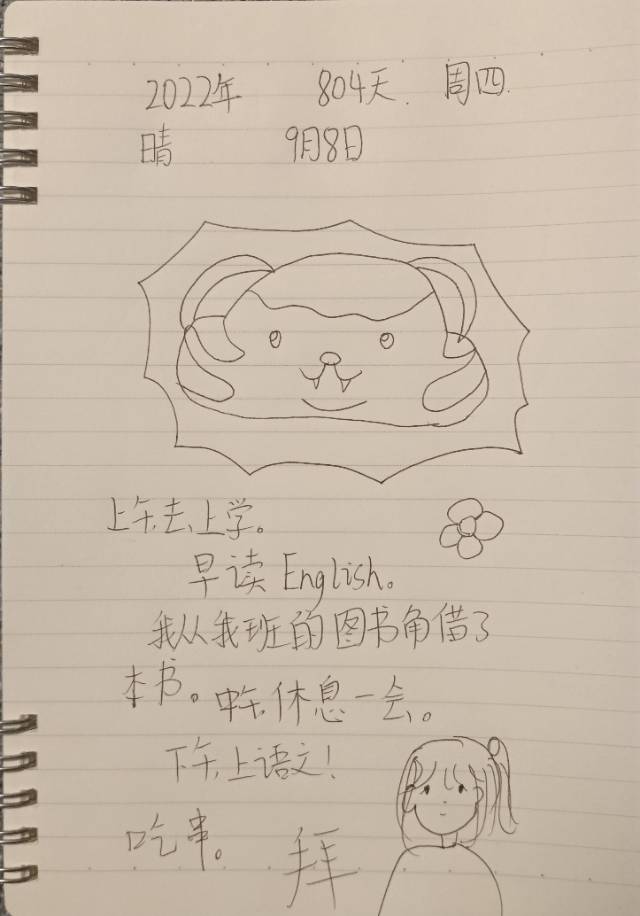 2022年 804天. 周四.
晴 9月8日
上午去上学。
早读 English。
我从我班的图书角借了
本书。中午休息一会。
下午上语文!
吃串。 拜